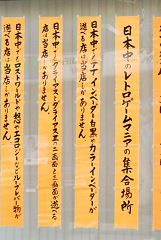 日本中のレトロゲームマニアの集合場所
日本中でアノインベーダー白黒がカラーインベーダーが
遊べる店は当店しかありません。
日本中でダライアスとダライアスⅡの二画面と三画面が遊べる
店は当店しかありません。
日本中でロストワールド
遊べる店は当店しかありません。